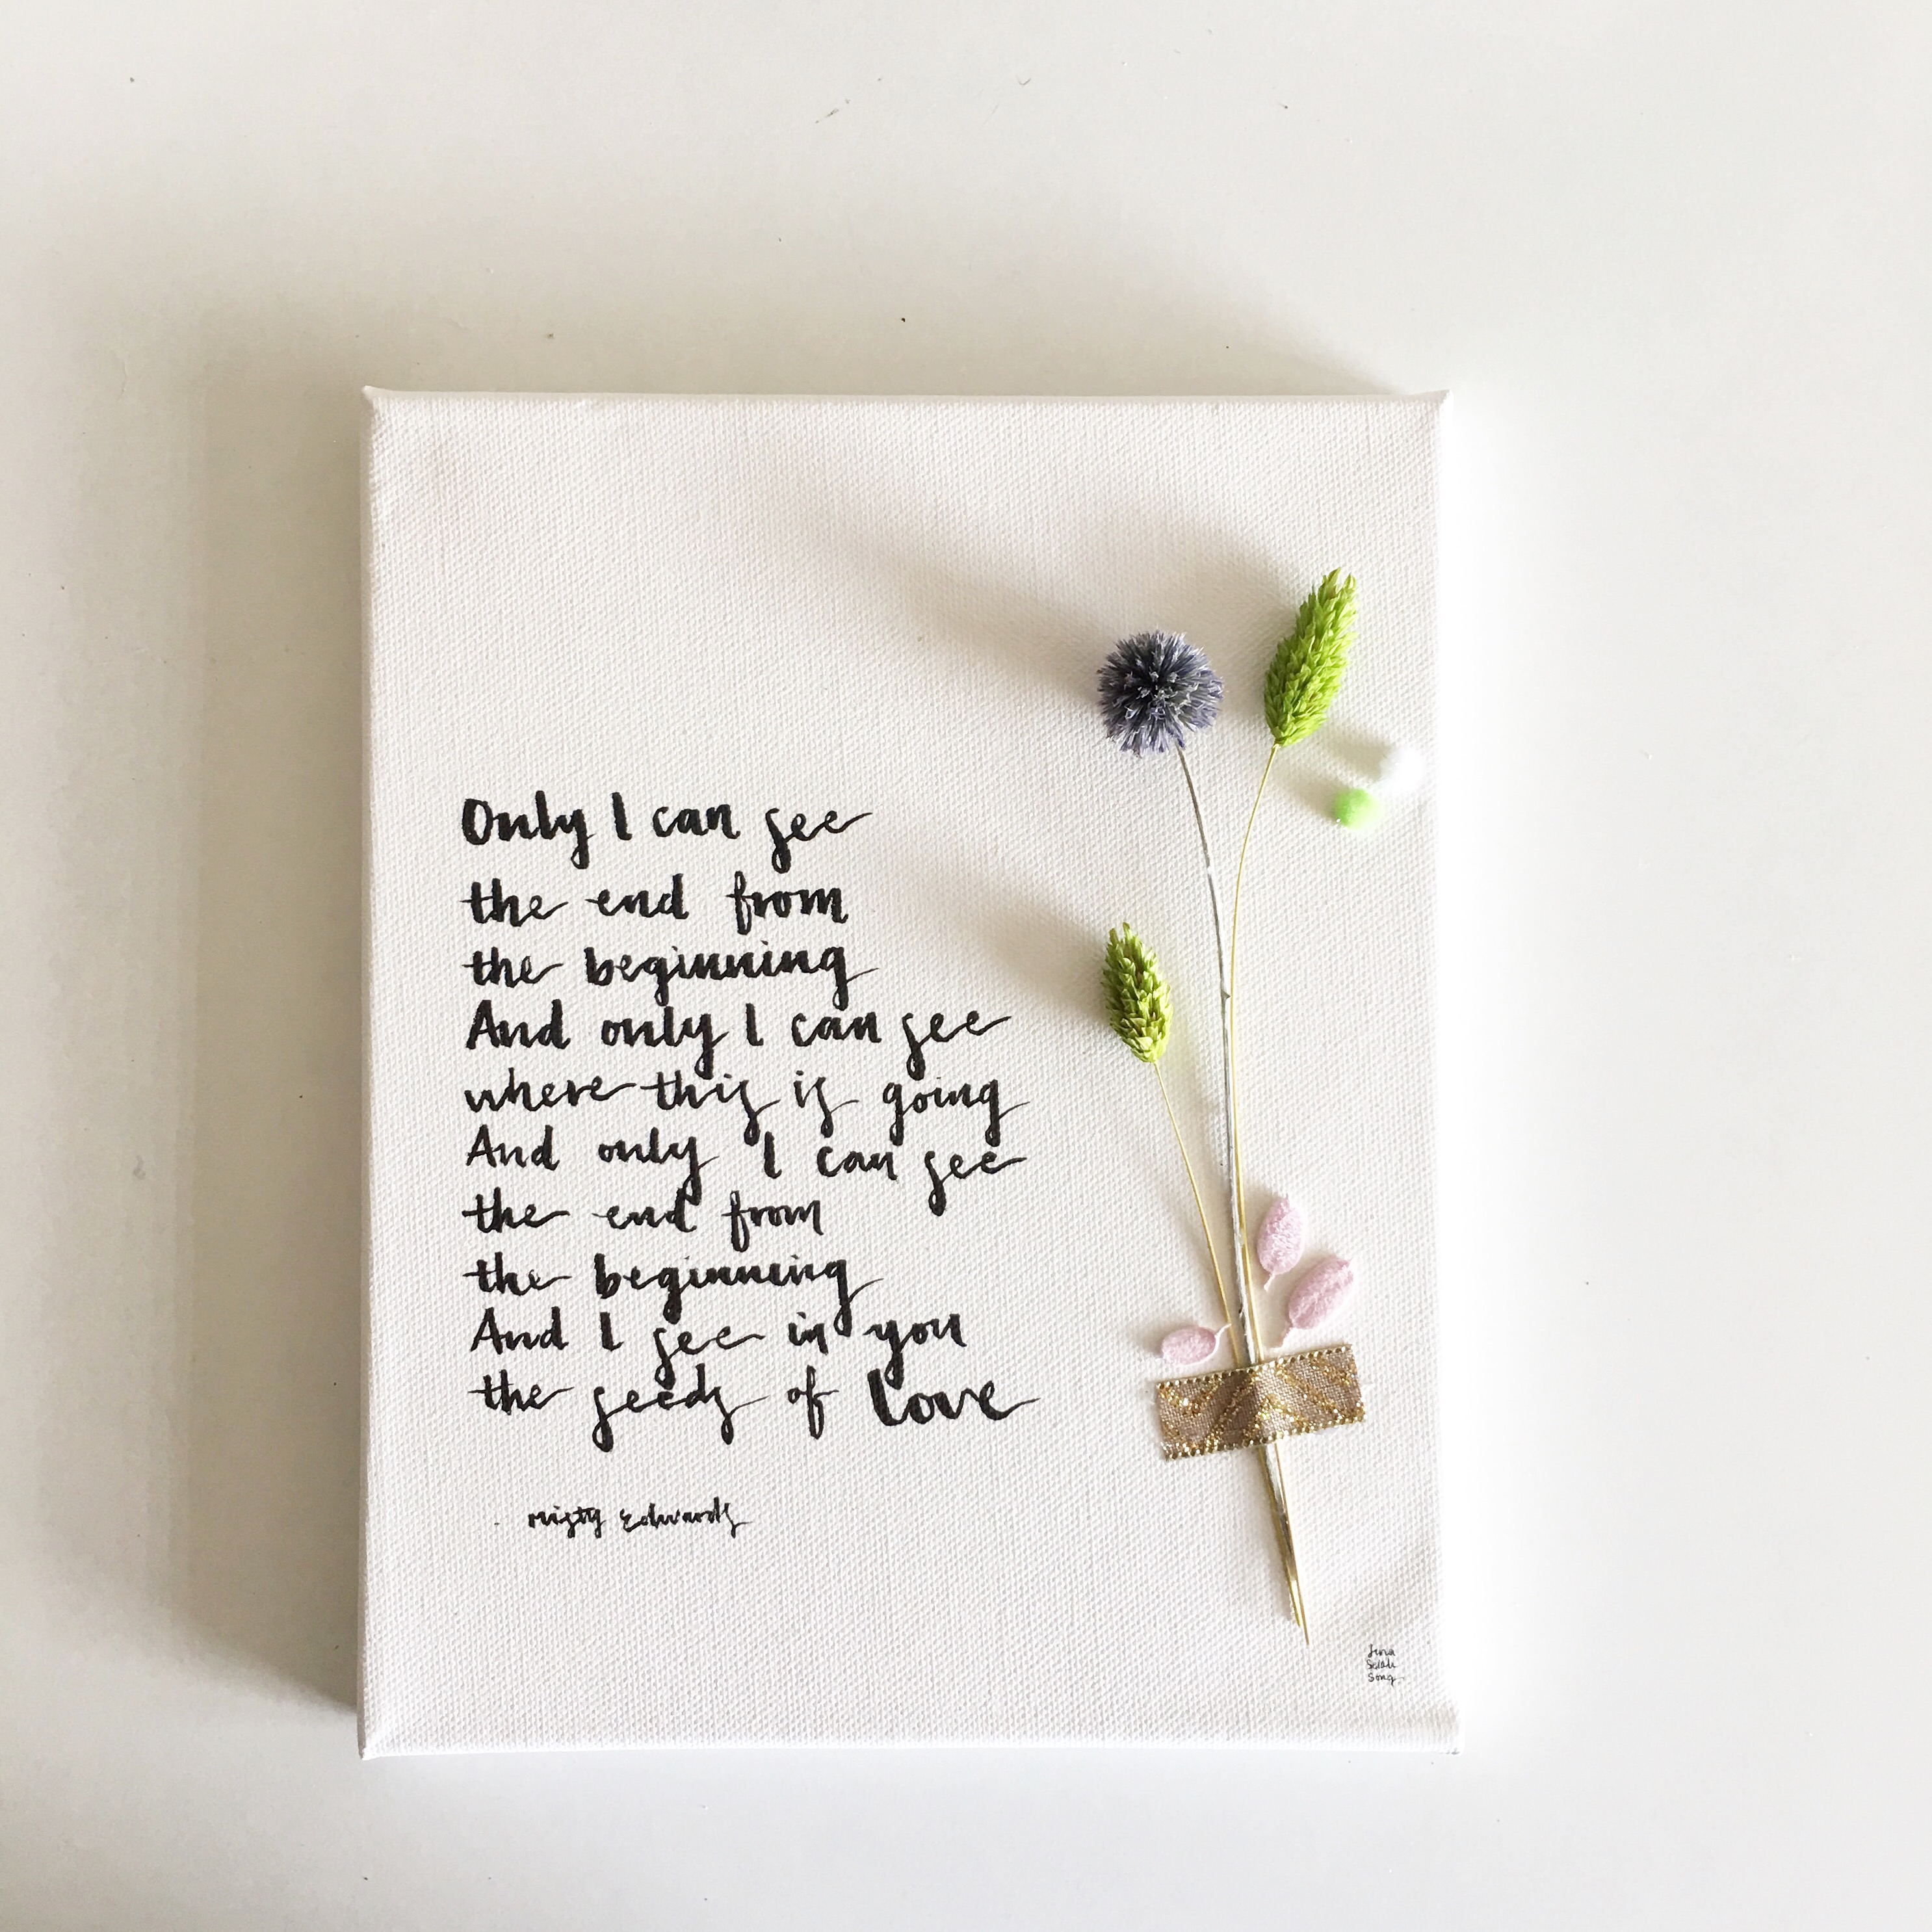 Only I can see
the end from
the beginning
And only I can see
where this is going
And only I can see
the end from
the beginning
And I see in you
the seeds of love
- misty edwards
Jina
Selah
Song